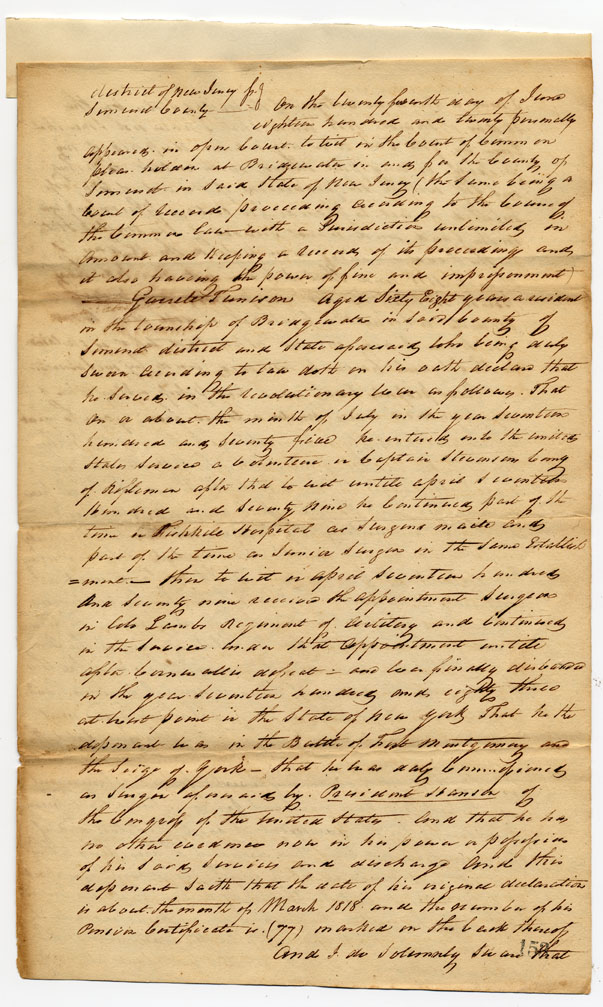 district of New Jersey
Somerset County On the twenty fourth day of June
eighteen hundred and twenty personally
appeared in open Court to wit in the Court of Common
pleas holden at Bridgewater in and for the County of
Somerset in said State of New Jersey (the same being a
Court of records proceeding according to the Course of
the Common law with a Jurisdiction unlimited in
amount and keeping a record of its proceedings and
it also having the power of fine and imprisonment)
— Garrett Tunison Aged Sixty Eight years a resident
in the township of Bridgewater in said County of
Somerset district and State aforesaid, who being duly
sworn according to law doth on his oath declare that
he served in the revolutionary War as follows. That
on or about the month of July in the year seventeen
hundred and seventy five he entered into the united
States Service a Volunteer in Captain Stevenson Comy
of Riflemen after that to wit untile april seventeen
Hundred and Seventy Nine he Continued part of the
time in Fishkile Hospital as Surgeons mate and
part of the time as Senior Surgeon in the same Establish
=ment — then to wit in april seventeen hundred
and seventy nine receive the appointment Surgeon
in Colo Lambs Regiment of Artilery and Continued
in the Service under that appointment untile
after Cornwallis defeat — and was finally disbanded
in the year seventeen hundred and eighty three
at west point in the State of New York That he the
deponent was in the Battle of Fort Montgomery and
the Seige of York — that he was duly Commissioned
as Surgeon aforesaid by President Hancok of
the Congress of the United States. And that he has
no other evidence now in his power or possession
of his said Services and discharge And this
deponent saith that the date of his original declaration
is about the month of March 1818 and the number of his
Pension Certificate is (77) marked on the back thereof
And I do Solemnly Swear that